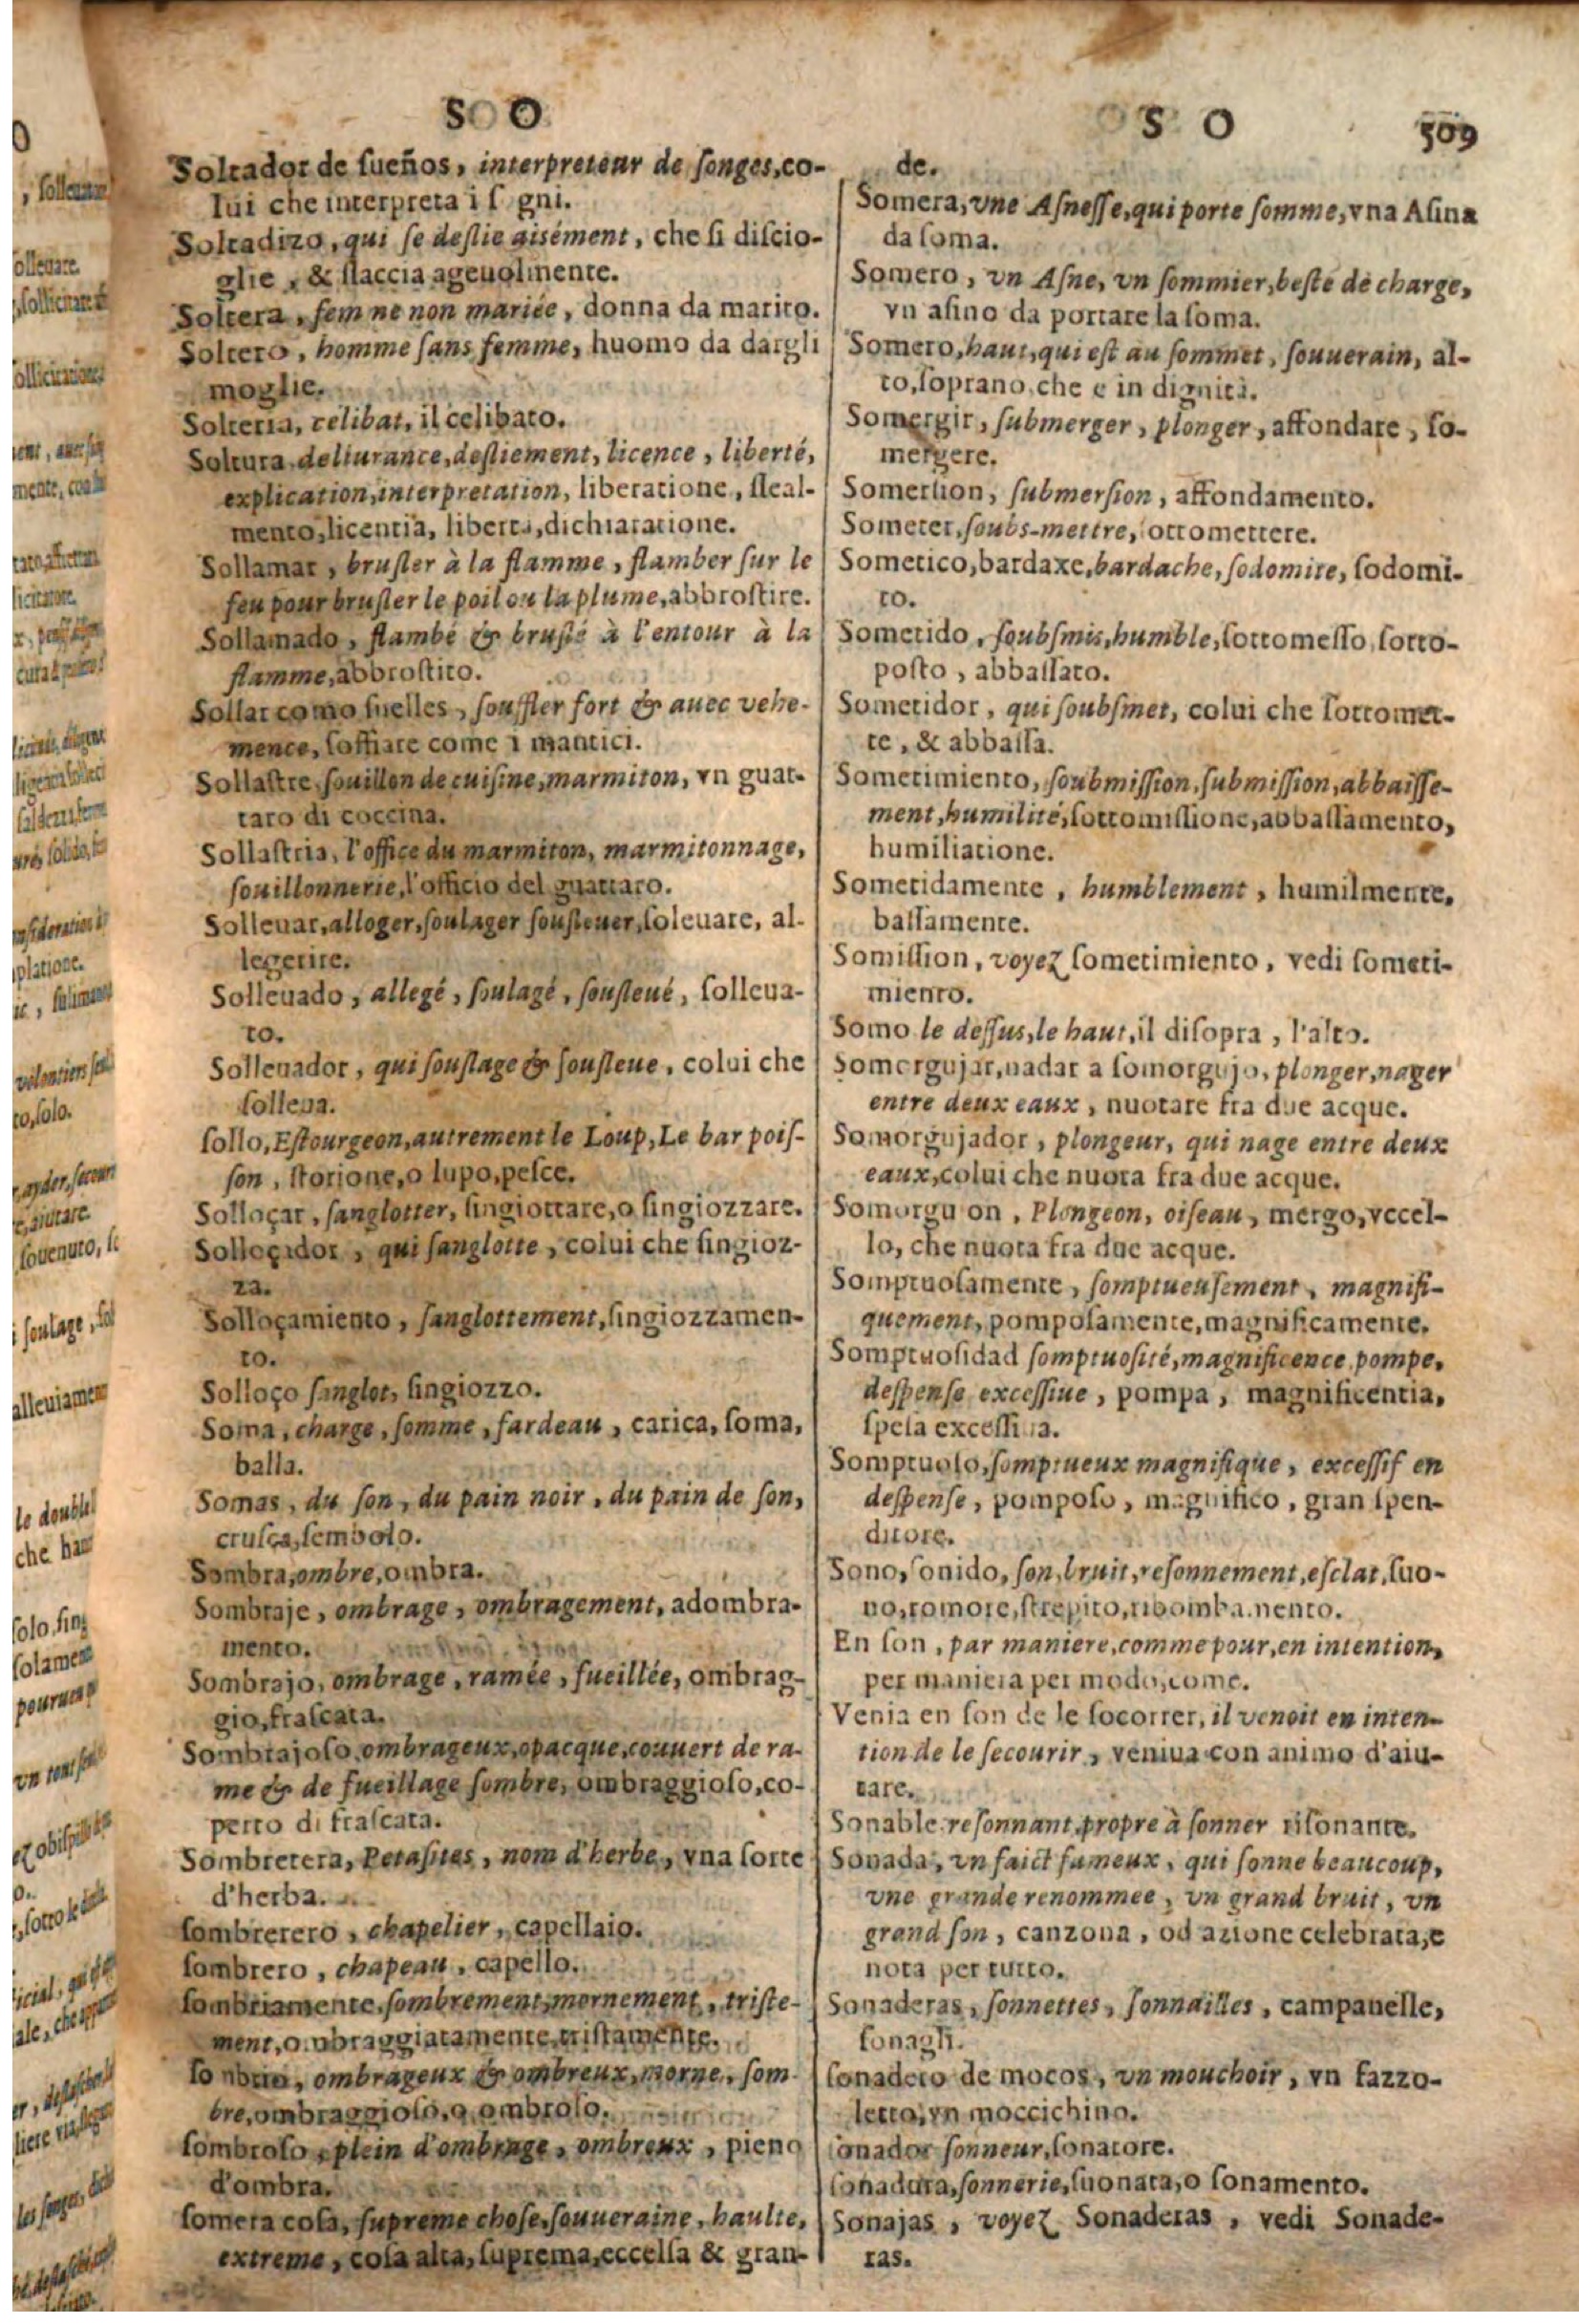 S O
Soltador de sueños, interpreteur de songes, co-
lui che interpreta i s gni.
Soltadizo, qui se deslie aisément, che si discio-
glie, & slaccia ageuolmente.
Soltera, femme non mariée, donna da marito.
Soltero, homme sans femme, huomo da dargli
moglie.
Solteria, celibat, il celibato.
Soltura deliurance, desliement, licence, liberté,
explication, interpretation, liberatione, sleal-
mento, licentia, liberta, dichiaratione.
Sollamar, brusler à la flamme, flamber sur le
feu pour brusler le poil ou la plume, abbrostire.
Sollamado, flambé & bruslé à l'entour à la
flamme, abbrostito.
Sollar como fuelles, souffler fort & auec vehe-
mence, soffiare come i mantici.
Sollastre souillon de cuisine, marmiton, vn guat-
taro di coccina.
Sollastria, l'office du marmiton, marmitonnage,
souillonnerie, l'officio del guattaro.
Solleuar, alloger, soulager sousleuer, soleuare, al-
legerire.
Solleuado, allegé, soulagé, sousleué, solleua-
to.
Solleuador, qui souslage & sousleue, colui che
solleua.
sollo, Estourgeon, autrement le Loup, Le bar pois-
son, storione, o lupo, pesce.
Solloçar, sanglotter, singiottare, o singiozzare.
Solloçador, qui sanglotte, colui che singioz-
za.
Solloçamiento, sanglottement, singiozzamen-
to.
Solloço sanglot, singiozzo.
Soma, charge, somme, fardeau, carica, soma,
balla.
Somas, du son, du pain noir, du pain de son,
crusca, sembolo.
Sombra, ombre, ombra.
Sombraje, ombrage, ombragement, adombra-
mento.
Sombrajo, ombrage, ramée, fueillée, ombrag-
gio, frascata.
Sombrajoso ombrageux, opacque, couuert de ra-
me & de fueillage sombre, ombraggioso, co-
perto di frascata.
Sombretera, Petasites, nom d'herbe, vna sorte
d'herba.
sombrerero, chapelier, capellaio.
sombrero, chapeau, capello.
sombriamente, sombrement, mornement, triste-
ment, ombraggiatamente, tristamente.
so nbrio, ombrageux & ombreux, morne, som-
bre, ombraggioso, o ombroso.
sombroso, plein d'ombrage, ombreux, pieno
d'ombra.
somera cosa, supreme chose, souueraine, haulte,
extreme, cosa alta, suprema, eccelsa & gran-
S O 509
de.
Somera, vne Asnesse, qui porte somme, vna Asina
da soma.
Somero, vn Asne, vn sommier, beste de charge,
vn asino da portare la soma.
Somero, haut, qui est au sommet, souuerain, al-
to, soprano, che e in dignità.
Somergir, submerger, plonger, affondare, so-
mergere.
Somersion, submersion, affondamento.
Someter, soubs-mettre, ottomettere.
Sometico, bardaxe, bardache, sodomite, sodomi-
to.
Sometido, soubsmis, humble, sottomesso, sotto-
posto, abbassato.
Sometidor, qui soubsmet, colui che sottomet-
te, & abbassa.
Sometimiento, soubmission, submission, abbaisse-
ment, humilité, sottomissione, abbassamento,
humiliatione.
Sometidamente, humblement, humilmente,
bassamente.
Somission, voyez sometimiento, vedi someti-
miento.
Somo le dessus, le haut, il disopra, l'alto.
Somorgujar, nadar a somorgujo, plonger, nager
entre deux eaux, nuotare fra due acque.
Somorgujador, plongeur, qui nage entre deux
eaux, colui che nuota fra due acque.
Somorgu on, Plongeon, oiseau, mergo, vccel-
lo, che nuota fra due acque.
Somptuosamente, somptueusement, magnifi-
quement, pomposamente, magnificamente.
Somptuosidad somptuosité, magnificence pompe,
despense excessiue, pompa, magnificentia,
spesa excessiua.
Somptuoso, somptueux magnifique, excessif en
despense, pomposo, magnifico, gran spen-
ditore.
Sono, sonido, son, bruit, resonnement, esclat, suo-
no, romore, strepito, ribombamento.
En son, par maniere, comme pour, en intention,
per maniera per modo, come.
Venia en son de le socorrer, il venoit en inten-
tion de le secourir, veniua con animo d'aiu-
tare.
Sonable resonnant, propre à sonner risonante.
Sonada, vn faict fameux, qui sonne beaucoup,
vne grande renommee, vn grand bruit, vn
grand son, canzona, od azione celebrata, e
nota per tutto.
Sonaderas, sonnettes, sonnailles, campanelle,
sonagli.
sonadero de mocos, vn mouchoir, vn fazzo-
letto, vn moccichino.
sonador sonneur, sonatore.
sonadura, sonnerie, suonata, o sonamento.
Sonajas, voyez Sonaderas, vedi Sonade-
ras.